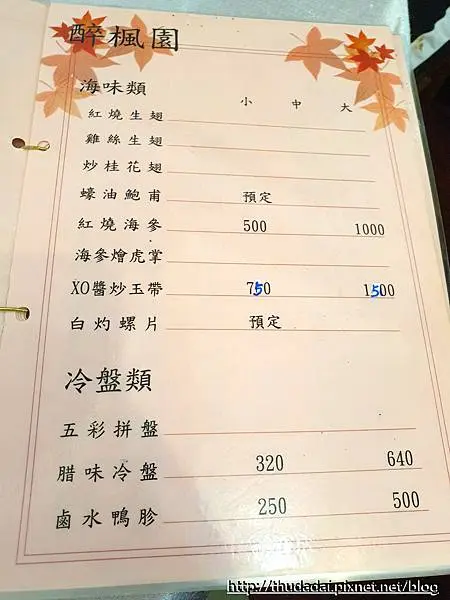 醉楓園
海味類 小 中 大
紅燒生翅
雞絲生翅
炒桂花翅
蠔油鮑甫 預定
紅燒海參 500 1000
海參燴虎掌
XO醬炒玉帶 750 1500
白灼螺片 預定
冷盤類
五彩拼盤
腊味冷盤 320 640
鹵水鴨胗 250 500
http://thudadai.pixnet.net/blog